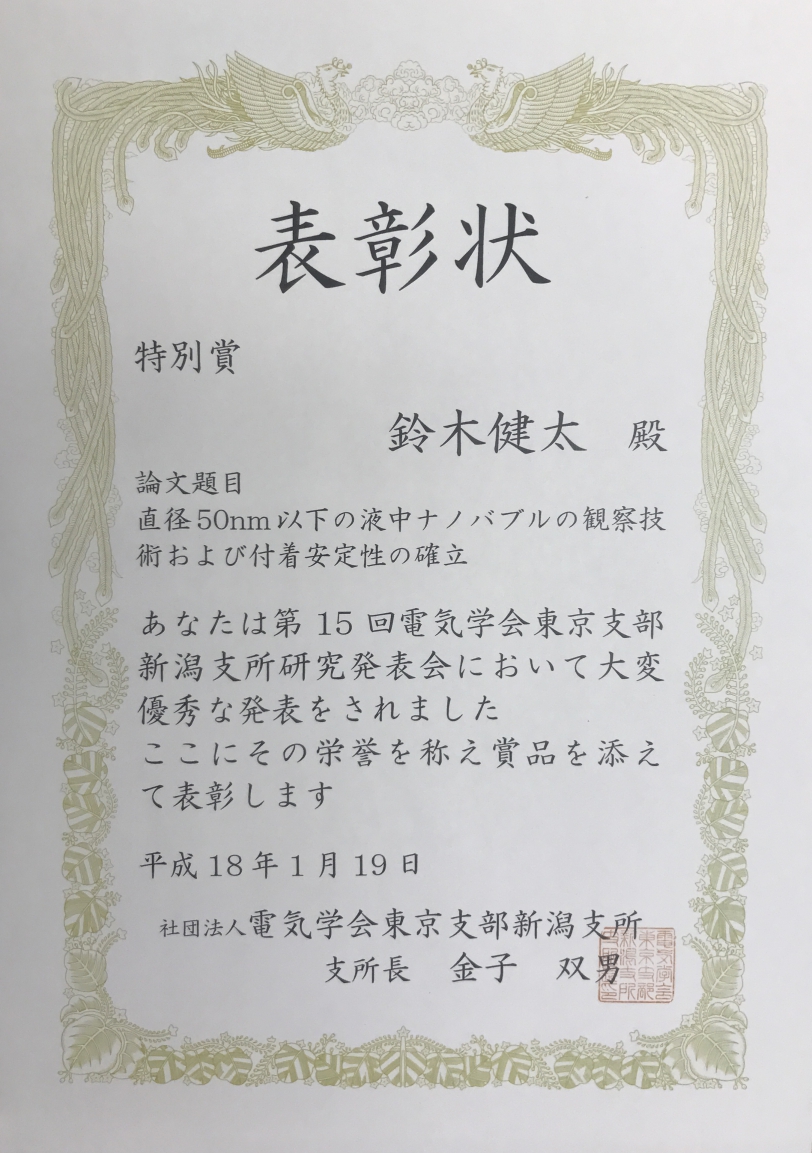 表彰状
特別賞
鈴木健太 殿
論文題目
直径50nm以下の液中ナノバブルの観察技
術および付着安定性の確立
あなたは第 15 回電気学会東京支部
新潟支所研究発表会において大変
優秀な発表をされました
ここにその栄誉を称え賞品を添え
て表彰します
平成 18 年 1 月 19 日
社団法人電気学会東京支部新潟支所
支所長 金子 双男